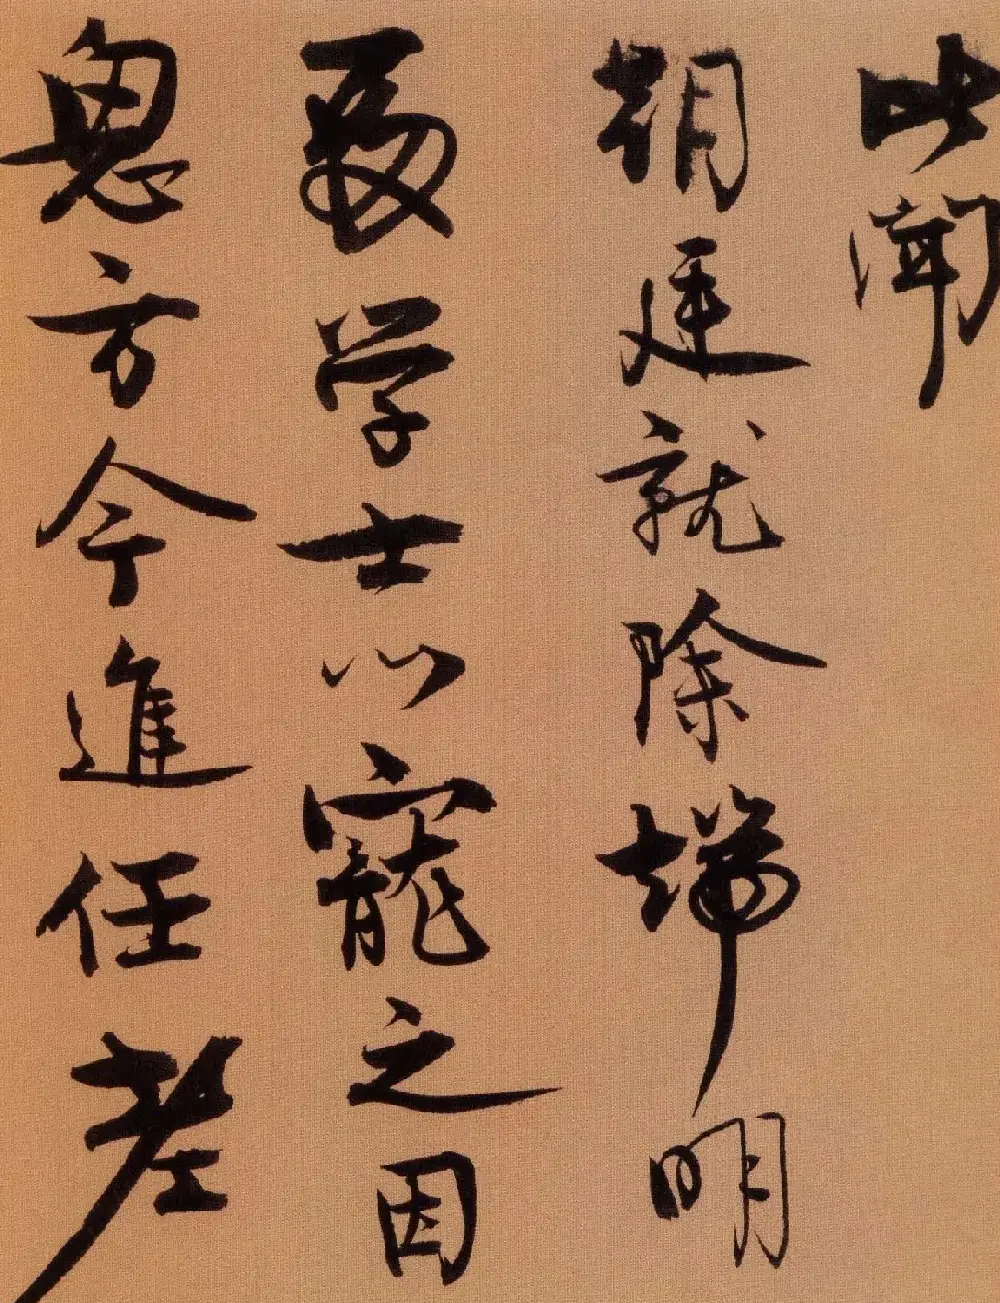 此聞
朝廷就除端明
殿学士以寵之因
思方今進任差